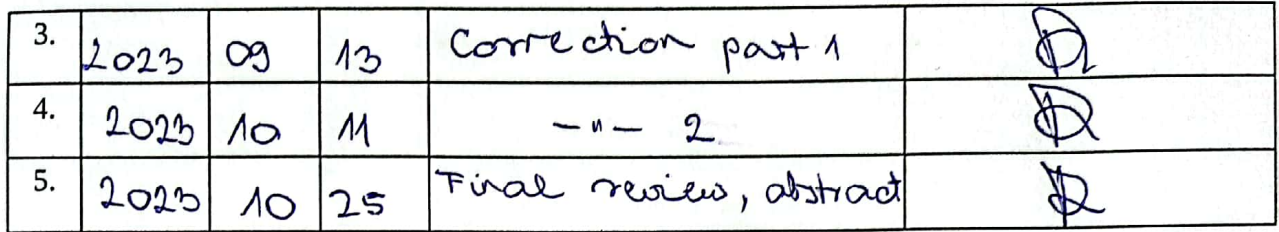 3. 2023 09 13 Correction part 1
4. 2023 10 11 -"- 2
5. 2023 10 25 Final review, abstract